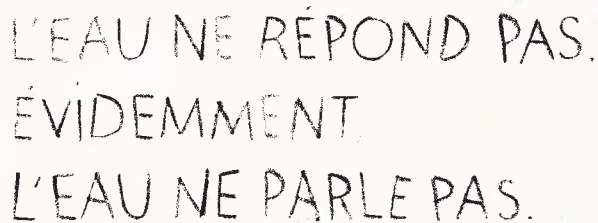 L'EAU NE RÉPOND PAS.
ÉVIDEMMENT.
L'EAU NE PARLE PAS.